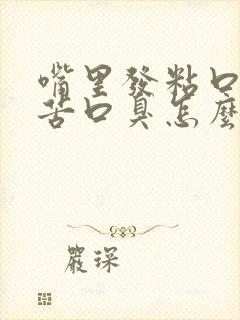 嘴里發粘口
苦口臭怎麼
嚴琛